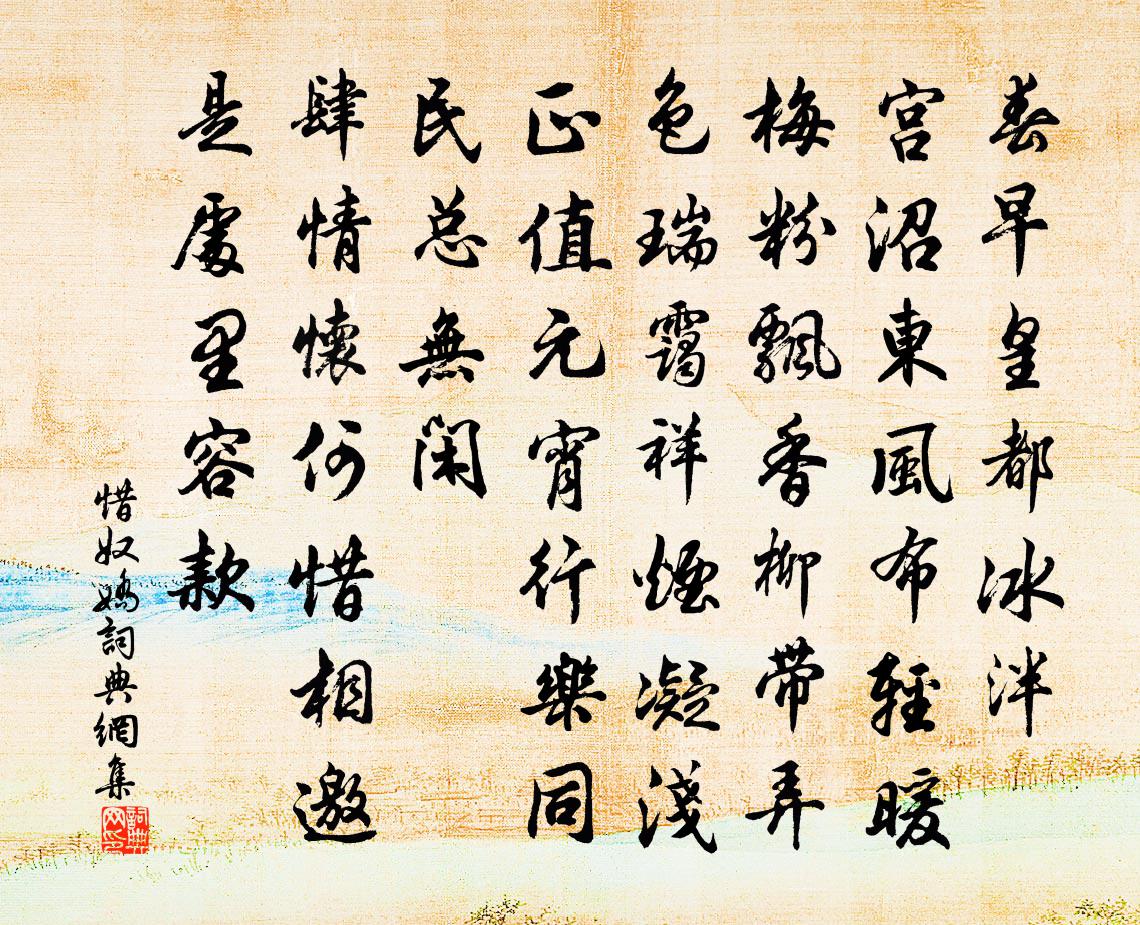 春早皇都冰泮
宮沼東風布輕暖
梅粉飄香柳帶弄
色瑞靄祥煙凝淺
正值元宵行樂同
民总無閑
肆情懷何惜相邀
是處里容款
惜奴嬌詞典網集
詞典网印